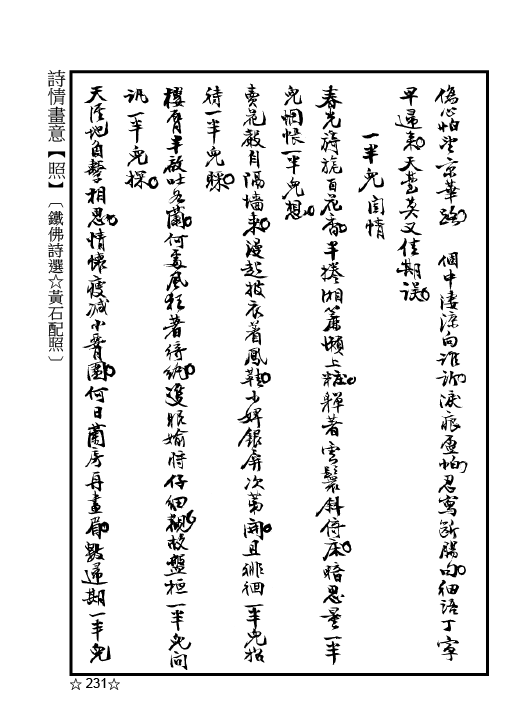 傷心怕望京華路　個中淒涼向誰訴淚痕盈怕忍寫斷腸句細語丁寧
早還來天臺莫又佳期誤
一半兒 閨情
春光旖旎百花香半捲湘簾懶上粧嚲著雲鬟斜倚床暗思量一半
兒惆悵一半兒想
賣花聲自隔墻來漫起披衣著鳳鞋小婢銀屏次第開且徘徊一半兒
待一半兒睬
櫻唇半啟吐名蘭何處風狂著綺紈雙眼媮將仔細觀故盤桓一半兒問
訊一半兒探
天涯地角繫相思情懷瘦減小胥圍何日蘭房再畫眉數還期一半兒
詩情畫意【照】〔鐵佛詩選☆黃石配照〕
☆ 231☆